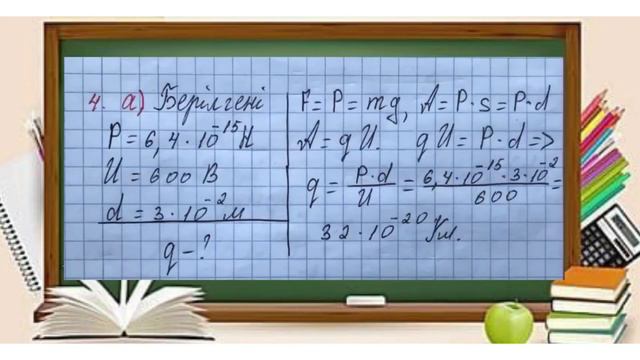 4. а) Берілгені
P = 6,4 · 10⁻¹⁵ Н
U = 600 В
d = 3 · 10⁻² м
q - ?
F = P = mg, A = P · s = P · d
A = qU. qU = P · d =>
q = P·d / U = 6,4 · 10⁻¹⁵ · 3 · 10⁻² / 600 =
32 · 10⁻²⁰ Кл.